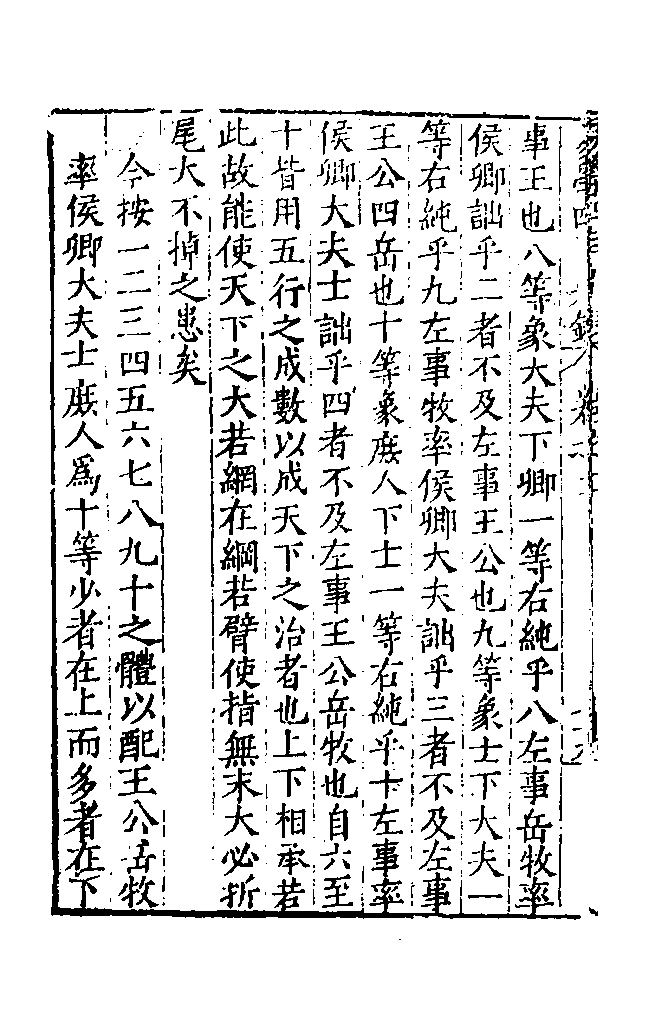 事王也八等象大夫下卿一等右純乎八左事岳牧率
侯卿詘乎二者不及左事王公也九等象士下大夫一
等右純乎九左事牧率侯卿大夫詘乎三者不及左事
王公四岳也十等象庶人下士一等右純乎十左事率
侯卿大夫士詘乎四者不及左事王公岳牧也自六至
十皆用五行之成數以成天下之治者也上下相承若
此故能使天下之大若網在綱若臂使指無末大必折
尾大不掉之患矣
今按一二三四五六七八九十之體以配王公岳牧
率侯卿大夫士庶人爲十等少者在上而多者在下